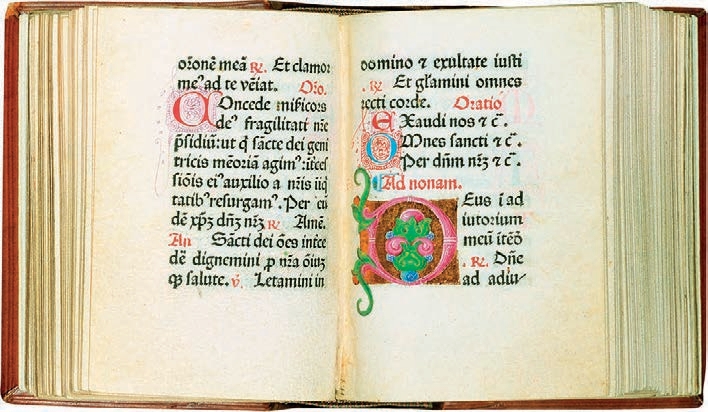 orōnē meā ℟. Et clamor
meꝰ ad te vēiat. Oro.
COncede mīsicors
deꝰ fragilitati nr̄e
p̄sidiū: ut q̄ sācte dei geni
tricis memoriā agimꝰ: ītceſ
sionis eiꝰ auxilio a nr̄is iīq
tatibꝰ resurgamꝰ. Per eū
dē xp̄ꝫ dn̄ꝫ nr̄ꝫ ℟. Amē.
An Sācti dei oēs intce
dē dignemini p nr̄a oīuꝫ
qꝫ salute. ℣. Letamini in
domino ⁊ exultate iusti
℟. Et gl̄amini omnes
recti corde. Oratio
EXaudi nos ⁊ c̄.
OMnes sancti ⁊ c̄.
Per dn̄m nr̄ꝫ ⁊ c̄.
Ad nonam.
DEus ī ad
iutorium
meū ītēō
℟. Dn̄e
ad adiu-